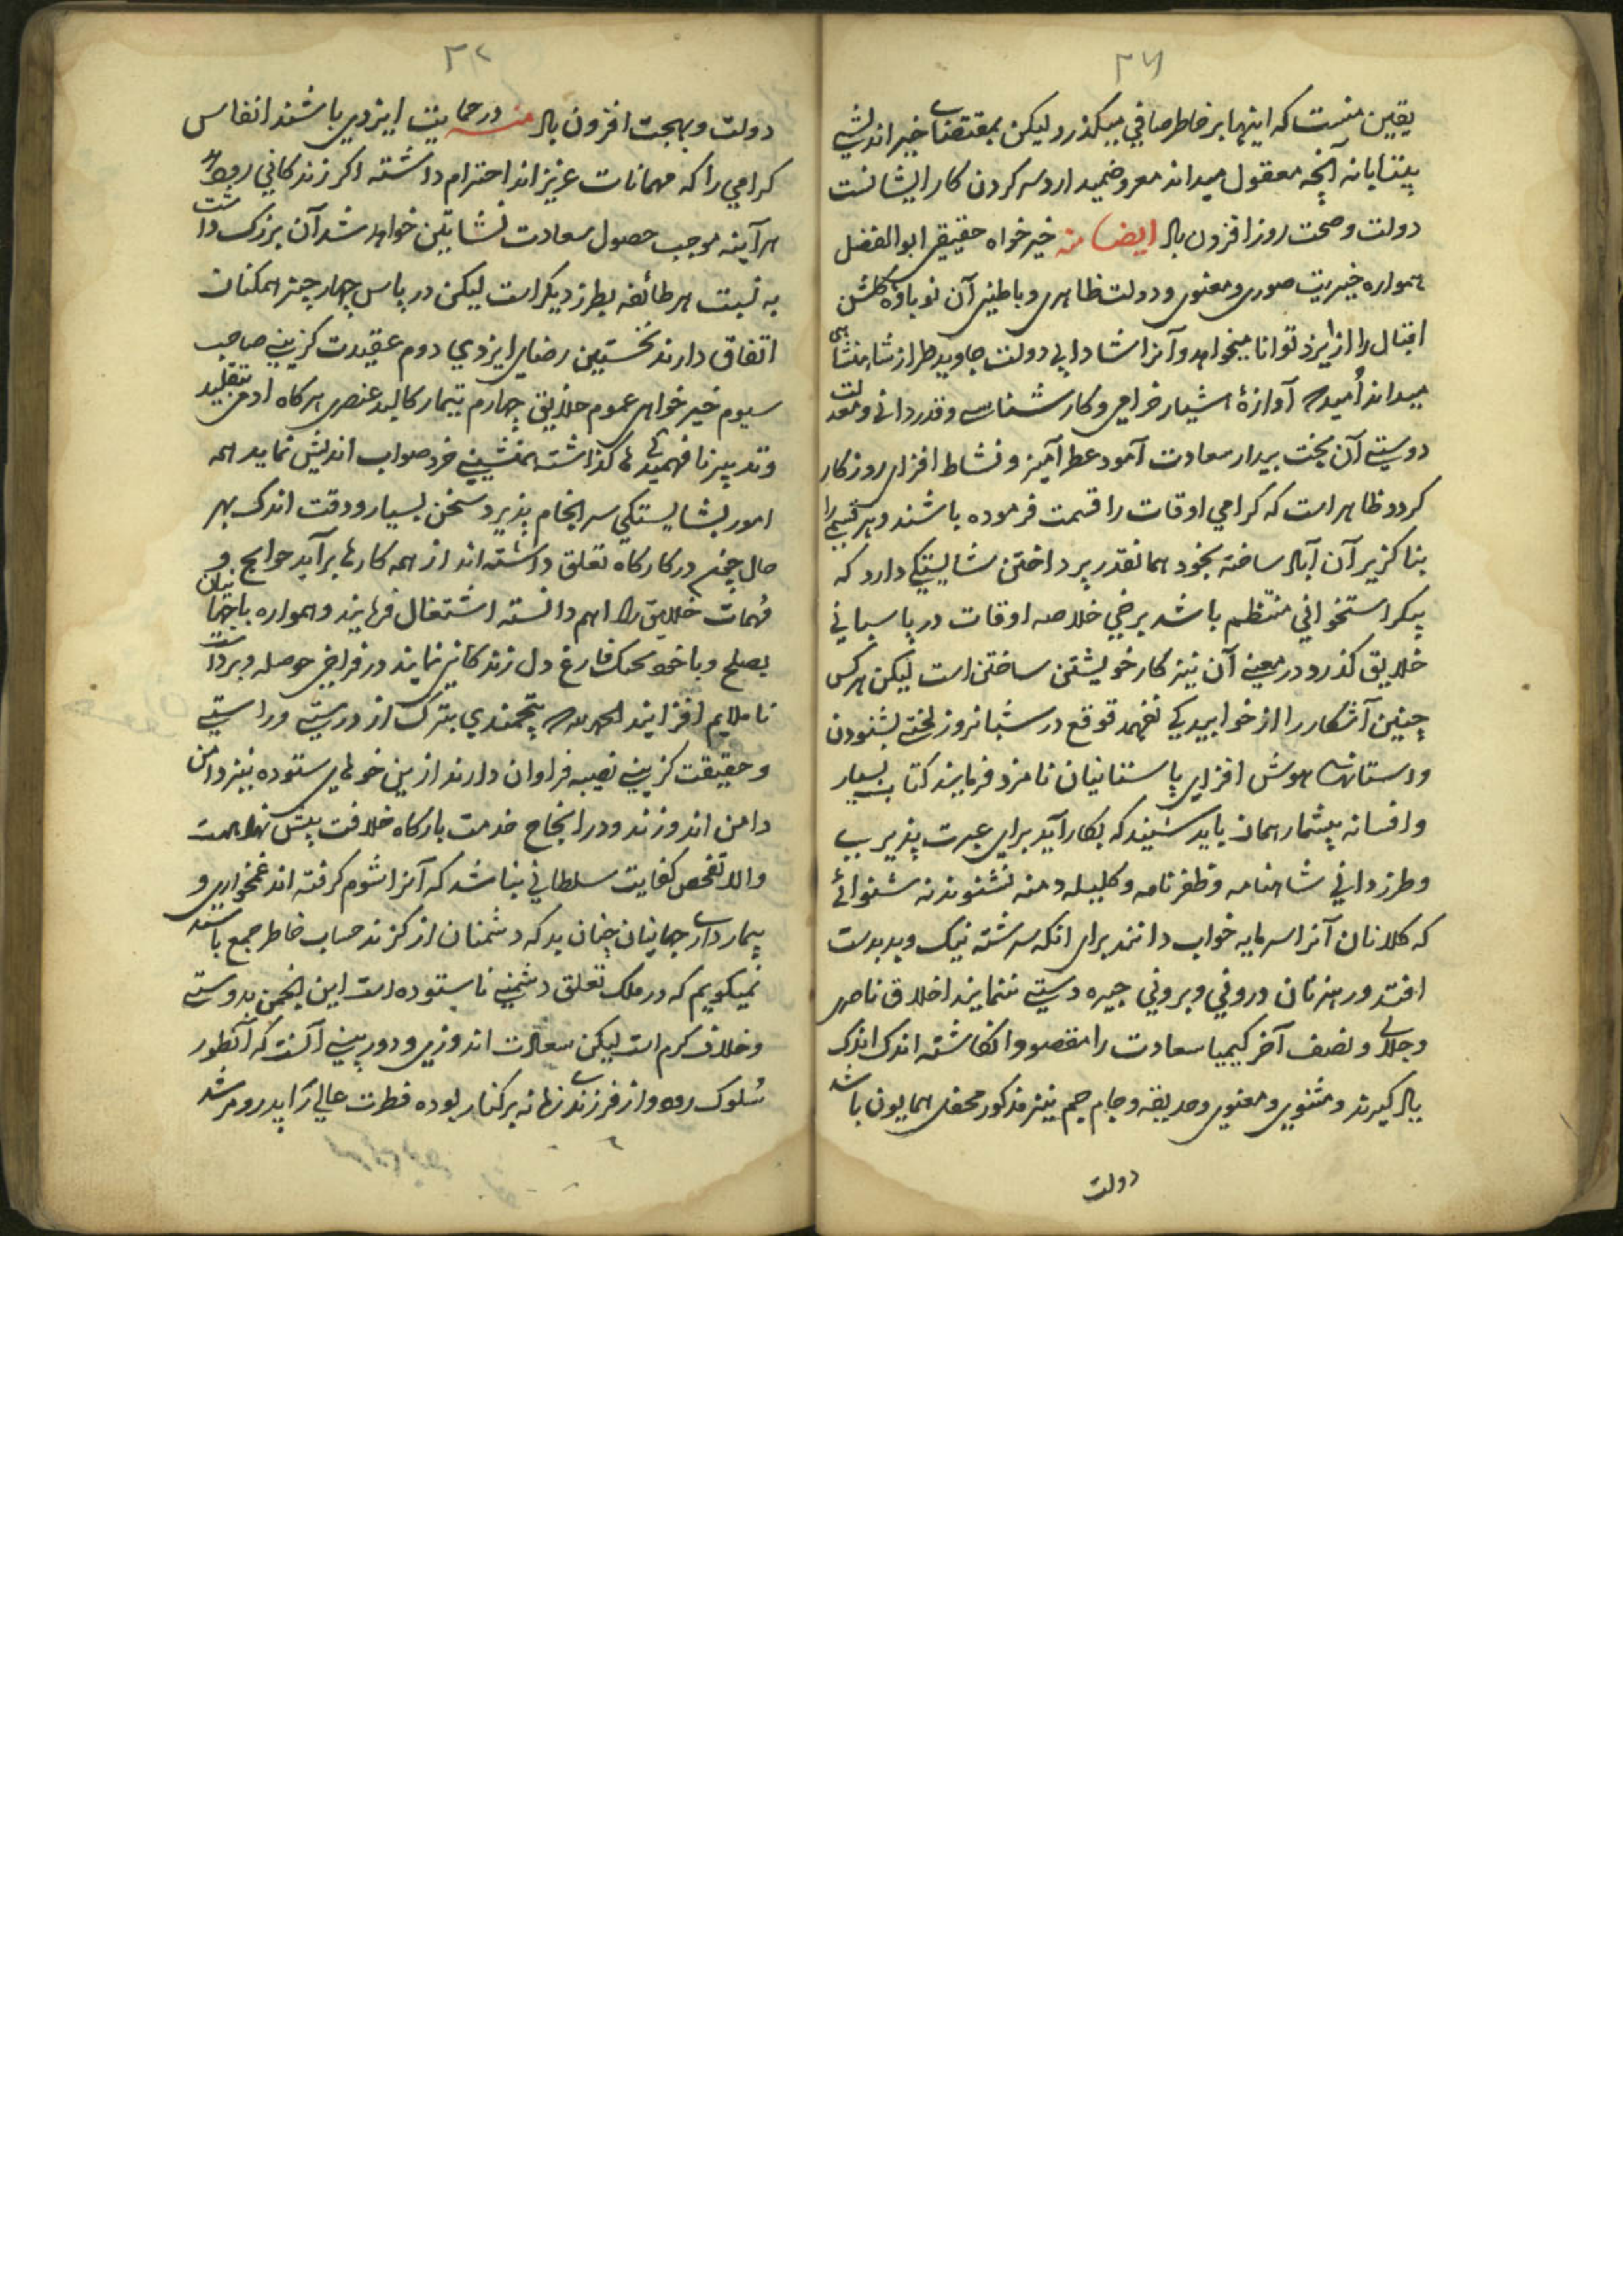 ۳۶
یقین منست که اینهما بر خاطر صافی میگذرد لیکن بمقتضای خیر اندیشی
بیتابانه آنچه معقول میداند معروضمیدارد سر کردن کار ایشانست
دولت و صحت روز افزون باد ایضا منه خیر خواه حقیقی ابوالفضل
همواره خیریت صوری و معنوی و دولت ظاهری و باطنی آن نوباوه گلشن
اقبال را از ایزد توانا میخواهد و آنرا شادابی دولت جاوید طراز شاهنشاهی
میداند اُمید که آوازهٔ هشیار خرامی و کار شناسی و قدردانی و معدلت
دوستی آن بخت بیدار سعادت آمود عطر آمیز و نشاط افزای روزکار
کردد ظاهر است که کرامی اوقات را قسمت فرموده باشند و هر قسمی را
بناکزیر آن آباد ساخته بخود همانقدر پرداختن شایستکی دارد که
پیکر استخوانی منتظم باشد برخی خلاصه اوقات در پاسبانی
خلایق کذرد و در معنی آن نیز کار خویشتن ساختن است لیکن هر کس
چنین آشکار را از خوابیدیکی نفهمد توقع در شبانروز لختی بشنودن
داستانهای هوش افزای پاستانیان نامزد فرمایند کتاب بسیار
و افسانه بیشمار همان باید شنید که بکار آید برای عبرت پذیری
و طرز دانی شاهنامه و ظفرنامه و کلیله دمنه نشنوند نه شنوائے
که کلانان آنرا سرمایه خواب دانند برای انکه سر شته نیک و بد بدست
افتد و رهزنان درونی و برونی چیره دستی ننمایند اخلاق ناصری
و جلالی و نصف آخر کیمیا سعادت را مقصود انکاشته اندک اندک
یاد کیرند و مثنوی و معنوی و حدیقه و جام جم نیز مذکور محفل همایون باشد
دولت
۳۷
دولت و بهجت افزون باد منه در حمایت ایزدی باشند انفاس
کرامی را که مهمانات عزیز اند احترام داشته اکر زندکانی رود
هر آینه موجب حصول سعادت نشاتین خواهد شد آن بزرک داشت
به نسبت هر طائفه بطرز دیکر است لیکن در پاس چهار چیز همکنان
اتفاق دارند نخستین رضای ایزدی دوم عقیدت کزینی صاحب
سیوم خیر خواهی عموم خلایق چهارم تیمار کالبد عنصری هرکاه ادمی تقلید
و تدبیر نا فهمیدکی ها کذاشته همنشینی خرد صواب اندیش نماید همه
امور بشایستکی سر انجام پذیرد سخن بسیار و دقت اندک بهر
حال چون در کارکاه تعلق داشته اند از همه کارها برآید حوایج و
مُهمات خلایق را اهم دانسته اشتغال فرمایند و همواره با جهانیان
بصلح و با خود بجنک فارغ دل زندکانی نمایند در فراخی حوصله و برداشت
ناملایم افزایند الحمد لله که پنجمندی بترک از درستی و راستی
و حقیقت کزینی نصیبه فراوان دارند از ین خوهای ستوده نیز دامن
دامن اندوزند و در انجاح خدمت بارکاه خلافت پیش نهاد همت
والا تفحص کفایت سلطانی نباشد که آنرا شوم کرفته اند غمخواری و
بیمار داری جهانیان چنان بد که دشمنان از کزند حساب خاطر جمع باشند
نمیکویم که در ملک تعلق دشمنی ناستوده است این انجمن بدوستی
و خلاف کرم است لیکن سعادت اندوزی و دوربینی آنست که آنطور
سُلوک رود و از فرزندی زمانه برکنار بوده فطرت عالی را پدر و مرشد